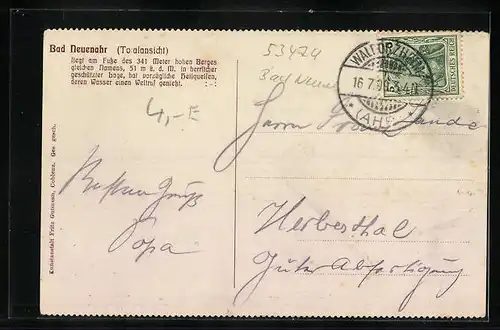 Bad Neuenahr (Totalansicht)
liegt am Fuße des 341 Meter hohen Berges
gleichen Namens, 51 m ü. d. M. in herrlicher
geschützter Lage, hat vorzügliche Heilquellen,
deren Wasser einen Weltruf genießt.
53474
Bad Neue
4,-E
WALPORZHEIM
16.7.
(AHR)
DEUTSCHES REICH
Herrn
Besten Gruß
Papa
Herbesthal
Güter Abfertigung
Kunstanstalt Fritz Gutmann, Coblenz. Ges. gesch.